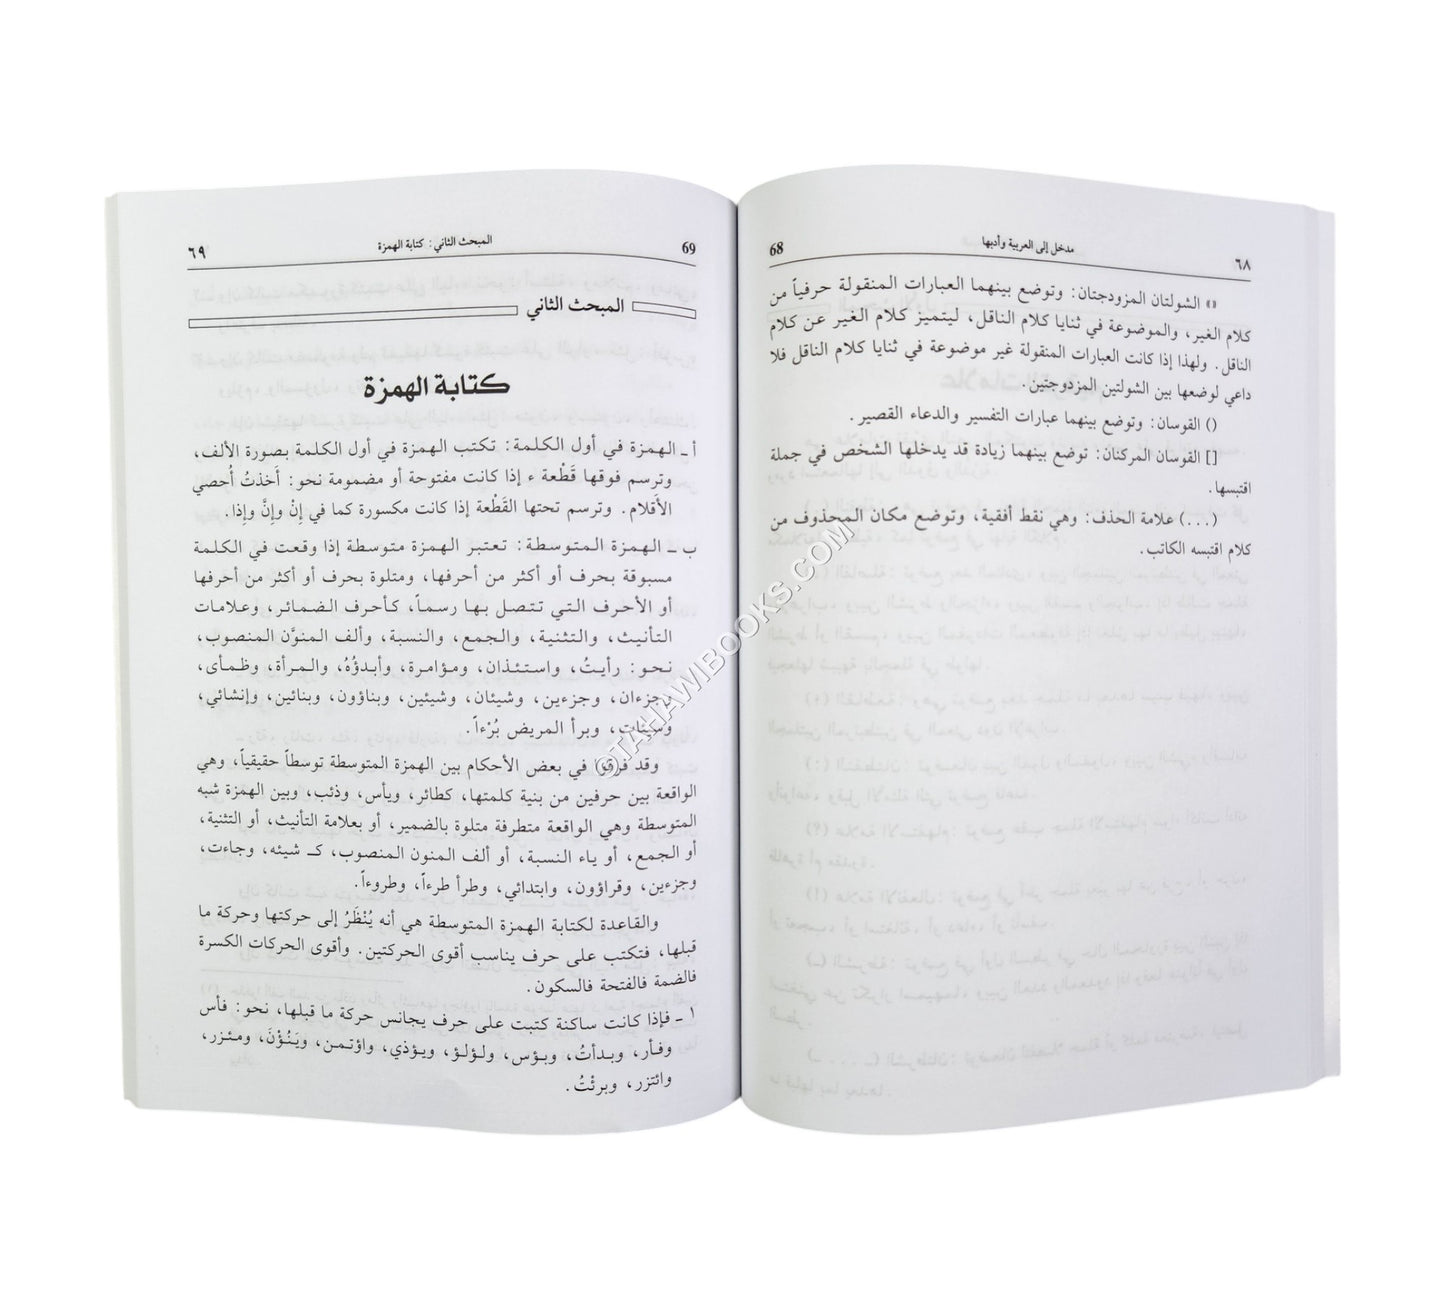 ٦٨ مدخل إلى العربية وأدبها 68
«» الشولتان المزودجتان: وتوضع بينهما العبارات المنقولة حرفياً من
كلام الغير، والموضوعة في ثنايا كلام الناقل، ليتميز كلام الغير عن كلام
الناقل. ولهذا إذا كانت العبارات المنقولة غير موضوعة في ثنايا كلام الناقل فلا
داعي لوضعها بين الشولتين المزدوجتين.
() القوسان: وتوضع بينهما عبارات التفسير والدعاء القصير.
[] القوسان المركنان: توضع بينهما زيادة قد يدخلها الشخص في جملة
اقتبسها.
(...) علامة الحذف: وهي نقط أفقية، وتوضع مكان المحذوف من
كلام اقتبسه الكاتب.
69 المبحث الثاني: كتابة الهمزة ٦٩
المبحث الثاني
كتابة الهمزة
أ ـ الهمزة في أول الكلمة: تكتب الهمزة في أول الكلمة بصورة الألف،
وترسم فوقها قَطْعة ء إذا كانت مفتوحة أو مضمومة نحو: أَخذتُ أُحصي
الأَقلام. وترسم تحتها القَطْعة إذا كانت مكسورة كما في إنْ وإنَّ وإذا.
ب ـ الهمزة المتوسطة: تعتبر الهمزة متوسطة إذا وقعت في الكلمة
مسبوقة بحرف أو أكثر من أحرفها، ومتلوة بحرف أو أكثر من أحرفها
أو الأحرف التي تتصل بها رسماً، كأحرف الضمائر، وعلامات
التأنيث، والتثنية، والجمع، والنسبة، وألف المنوَّن المنصوب،
نحو: رأيتُ، واستئذان، ومؤامرة، وأبدؤُهُ، والمرأة، وظمأى،
وجزءان، وجزءين، وشيئان، وشيئين، وبناؤون، وبنائين، وإنشائي،
وسيئات، وبرأ المريض بُرْءاً.
وقد فرقوا في بعض الأحكام بين الهمزة المتوسطة توسطاً حقيقياً، وهي
الواقعة بين حرفين من بنية كلمتها، كطائر، ويأس، وذئب، وبين الهمزة شبه
المتوسطة وهي الواقعة متطرفة متلوة بالضمير، أو بعلامة التأنيث، أو التثنية،
أو الجمع، أو ياء النسبة، أو ألف المنون المنصوب، كـ شيئه، وجاءت،
وجزءين، وقراؤون، وابتدائي، وطرأ طرءاً، وطروءاً.
والقاعدة لكتابة الهمزة المتوسطة هي أنه يُنْظَرُ إلى حركتها وحركة ما
قبلها، فتكتب على حرف يناسب أقوى الحركتين. وأقوى الحركات الكسرة
فالضمة فالفتحة فالسكون.
١ ـ فإذا كانت ساكنة كتبت على حرف يجانس حركة ما قبلها، نحو: فأس
وفأر، وبدأتُ، وبؤس، ولؤلؤ، ويؤذي، واؤتمن، ويَنُؤْنَ، ومئزر،
وائتزر، وبرئتُ.
©TAHAWIBOOKS.COM